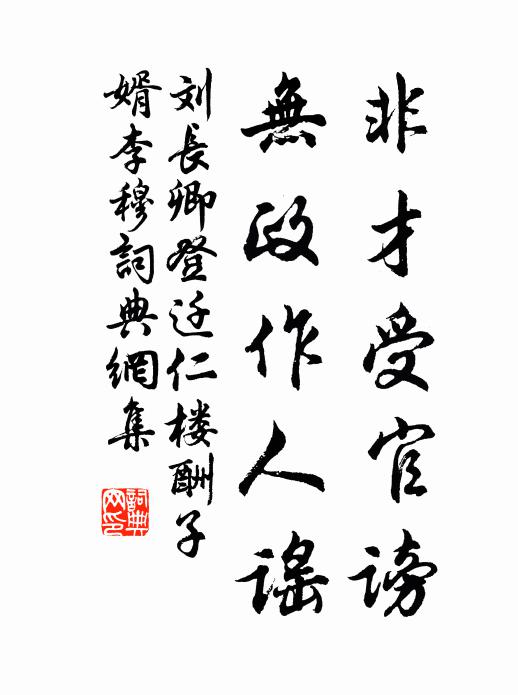 非才受官謗
無政作人謡
刘長卿登迁仁楼酬子
婿李穆詞典網集
詞典网印